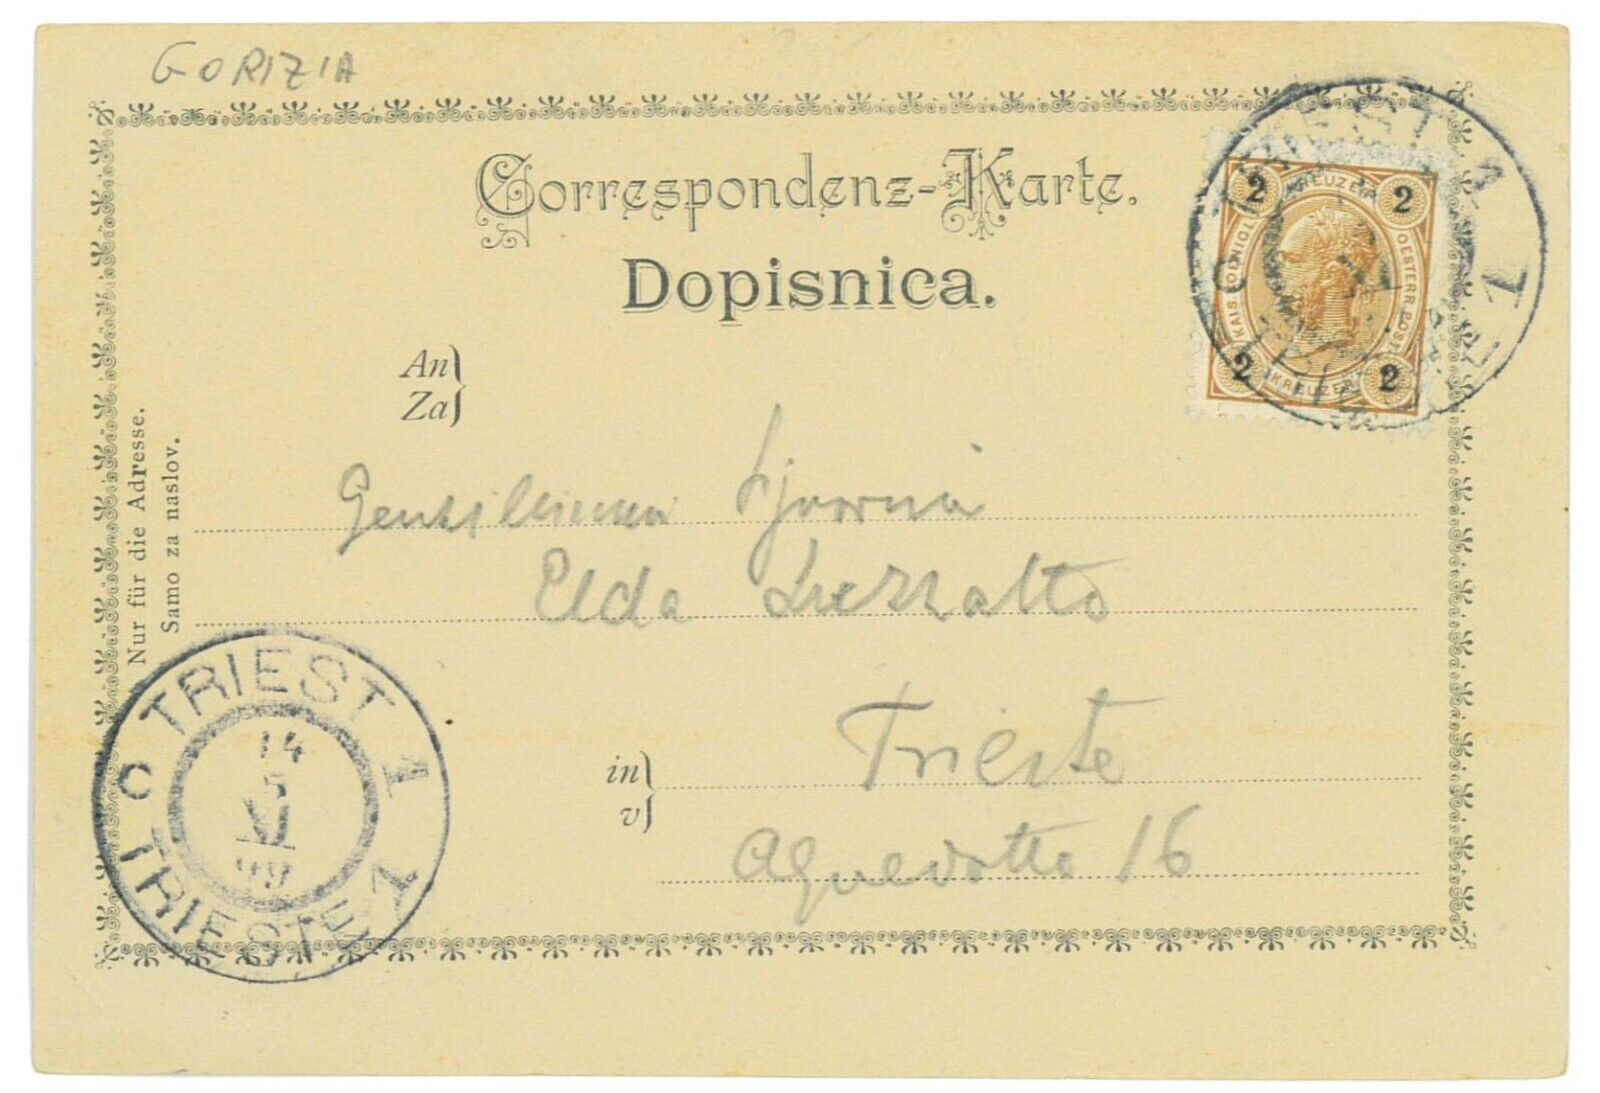 GORIZIA
Correspondenz-Karte.
Dopisnica.
2 KREUZER 2
KAIS. KOENIGL. OESTERR. POST
2 KREUZER 2
An
Za
Nur für die Adresse.
Samo za naslov.
Gentilissima
Elda Luzzatto
in
v
Trieste
Aquedotto 16
TRIEST 1
14
5
XI
99
C
TRIESTE 1